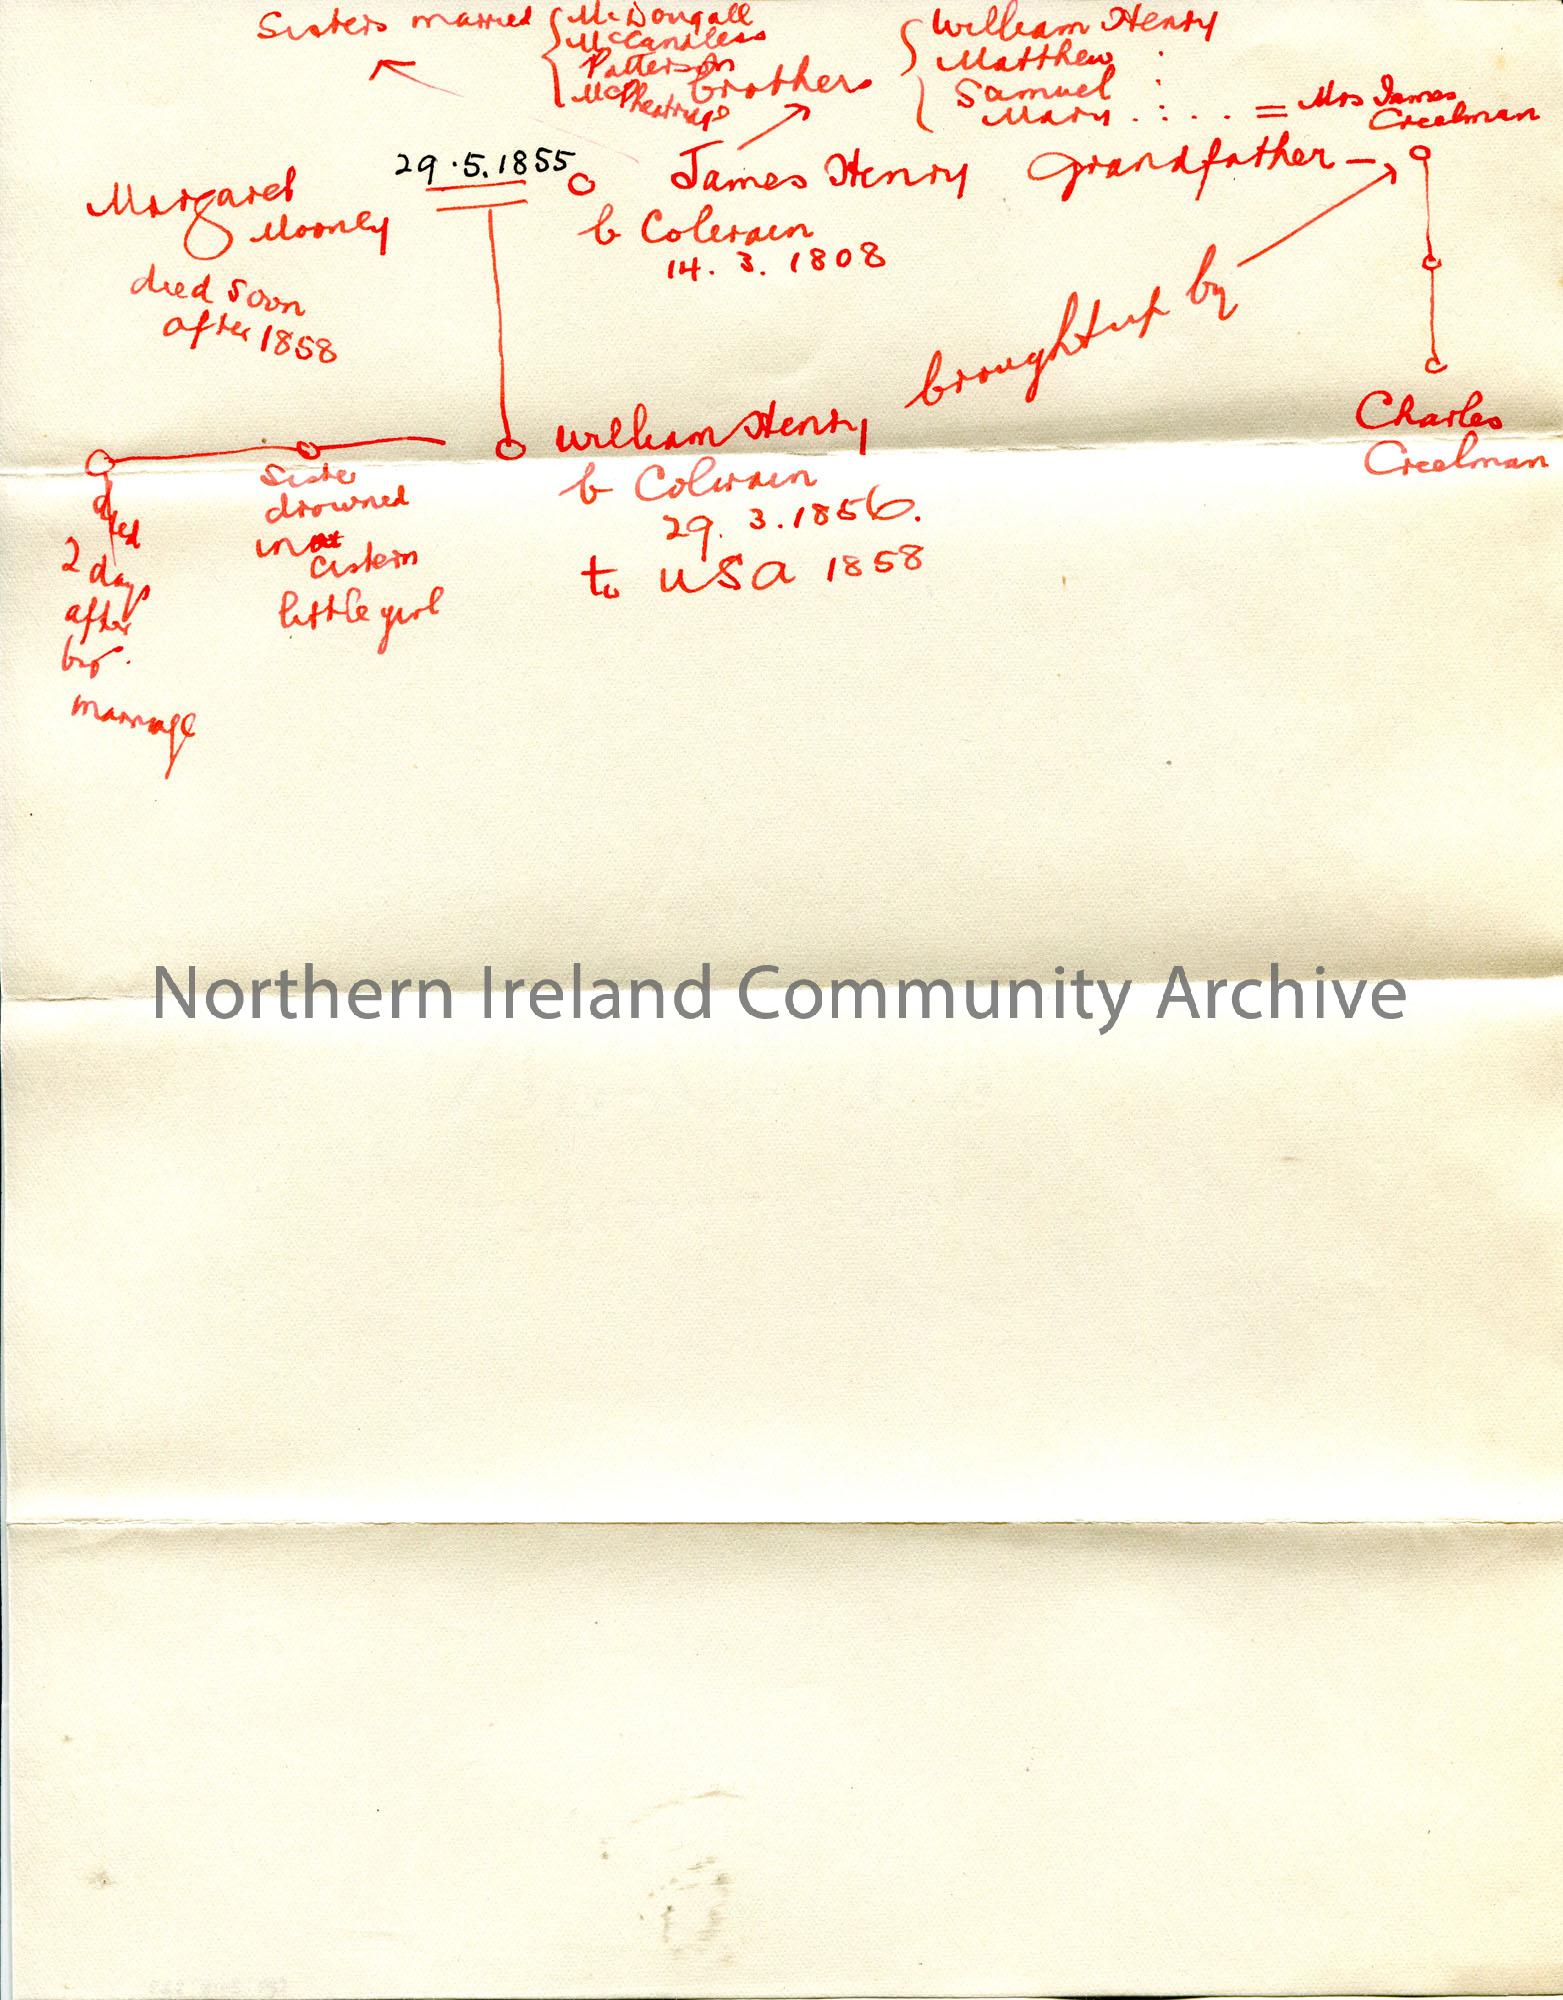 Sisters married
McDougall
McCandless
Patterson
brothers
William Henry
Matthew :
Samuel :
Mary . : . . = Mrs James
Creelman
29.5.1855
Margaret
Mooney
died soon
after 1858
James Henry
b Colerain
14. 3. 1808
Grandfather —
brought up by
Charles
Creelman
William Henry
b Colerain
29. 3. 1856.
to USA 1858
Sister
drowned
in
cistern
little girl
died
2 days
after
marriage
Northern Ireland Community Archive